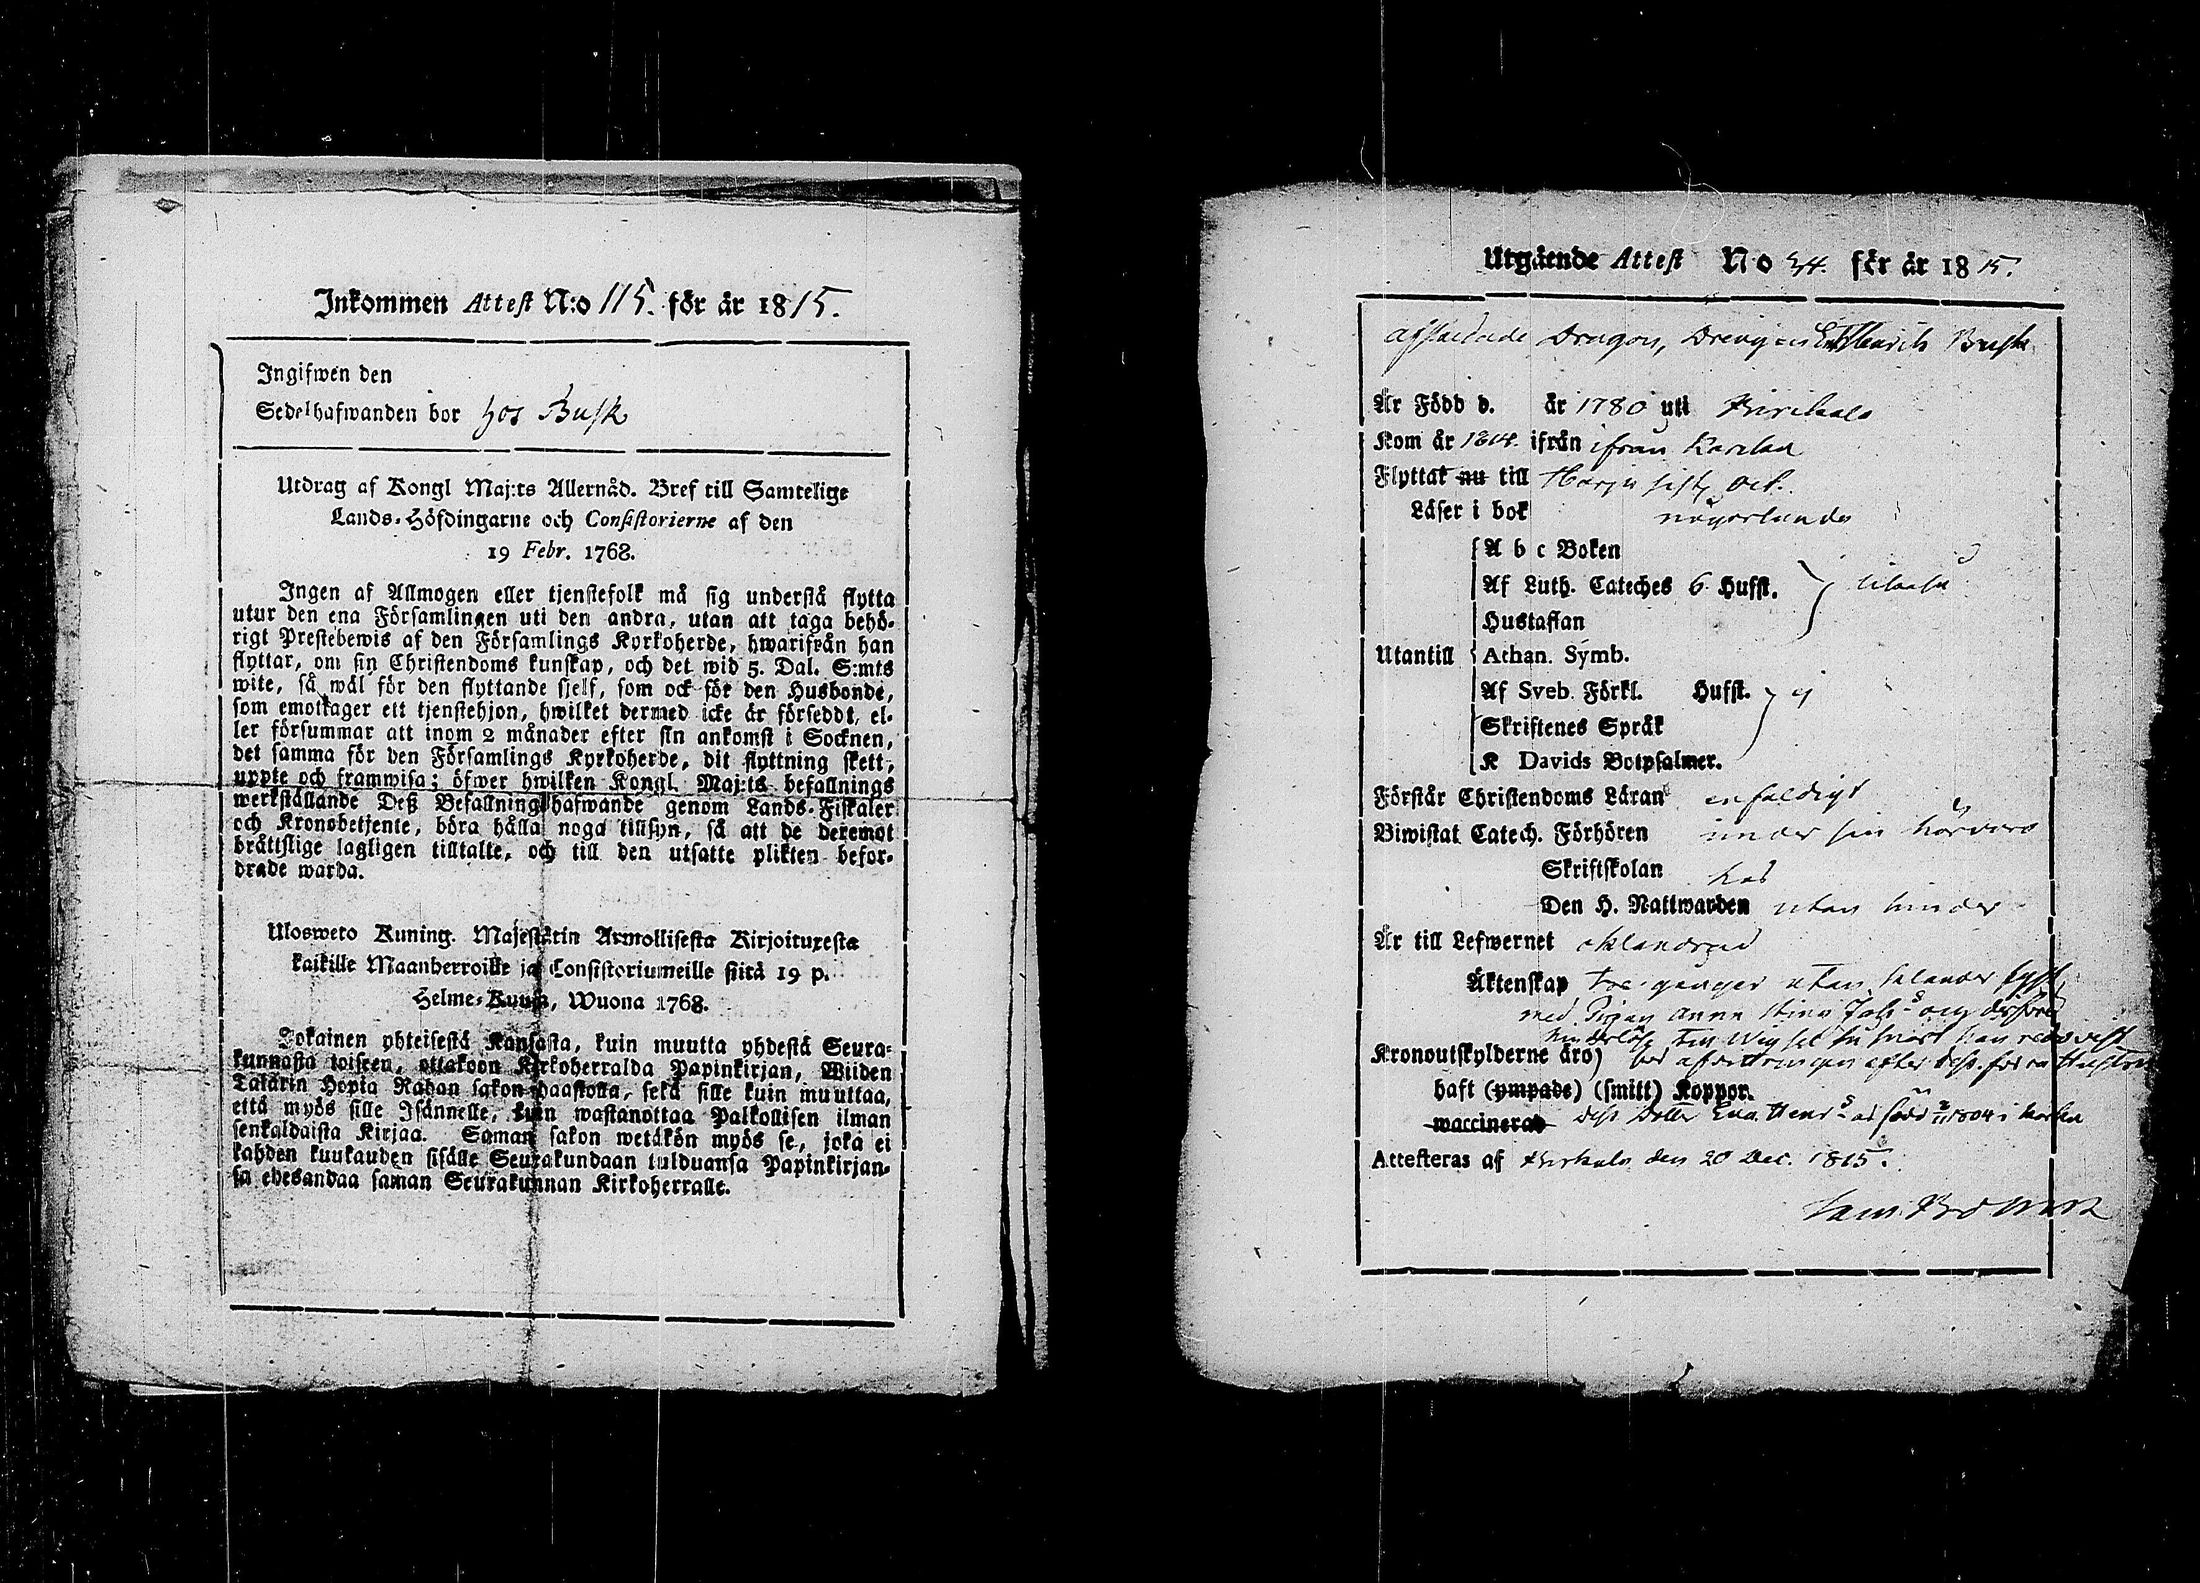 Inkommen Attest N:o 115. för år 1815.
Ingifwen den
Sedelhafwanden bor hos Busk
Utdrag af Kongl Maj:ts Allernåd. Bref till Samtelige
Lands-Höfdingarne och Consistorierne af den
19 Febr. 1768.
Ingen af Allmogen eller tjenstefolk må sig understå flytta
utur den ena Församlingen uti den andra, utan att taga behö-
rigt Prestebewis af den Församlings Kyrkoherde, hwarifrån han
flyttar, om sin Christendoms kunskap, och det wid 5. Dal. S:mts
wite, så wäl för den flyttande sjelf, som ock för den Husbonde,
som emottager ett tjenstehjon, hwilket dermed icke är förseddt, el-
ler försummar att inom 2 månader efter sin ankomst i Socknen,
det samma för den Församlings Kyrkoherde, dit flyttning skett,
uppte och framwisa; öfwer hwilken Kongl. Maj:ts befallnings
werkställande Deß Befallningshafwande genom Lands-Fiskaler
och Kronobetjente, böra hålla noga tillsyn, så att de deremot
bråttslige lagligen tilltalte, och till den utsatte plikten befor-
drade warda.
Ulosweto Kuning. Majestätin Armollisesta Kirjoituxesta
kaikille Maanherroille ja Consistoriumeille siitä 19 p.
Helme-Kuusa, Wuona 1768.
Jokainen yhteisestä Kansasta, kuin muutta yhdestä Seura-
kunnasta toiseen, ottakoon Kirkoherralda Papinkirjan, Wiiden
Talarin Hopia Rahan sakon haastolla, sekä sille kuin muuttaa,
että myös sille Isännelle, kuin wastanottaa Palkollisen ilman
senkaldaista Kirjaa. Saman sakon wetäkön myös se, joka ei
kahden kuukauden sisälle Seurakundaan tulduansa Papinkirjan-
sa edesandaa saman Seurakunnan Kirkoherralle.
Utgående Attest No 24. för år 1815.
afskedade Dragon, Henrich Busk
Är Född d. år 1780 uti
Kom år 1814. ifrån ifrån Karelen
Flyttat nu till Harju sistl. Oct.
Läser i bok någorlunda
A b c Boken
Af Luth. Cateches 6 Hufst.
Hustaflan
Utantill Athan. Symb.
Af Sveb. Förkl. Hufst. ej
Skriftenes Språk
K Davids Botpsalmer.
Förstår Christendoms Läran enfaldigt
Biwistat Catech. Förhören under sin härvaro
Skriftskolan
Den H. Nattwarden utan hinder
Är till Lefwernet oklandrad
Äktenskap tre gånger utan lyst,
med Pigan Anna Stina och
Kronoutskylderne äro)
haft (ympade) (smitt) Koppor.
waccinerad dess Dotter Eva Henr:s
Attesteras af den 20 Dec. 1815.